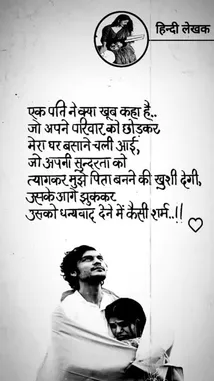 हिन्दी लेखक
एक पति ने क्या खूब कहा है..
जो अपने परिवार को छोडकर,
मेरा घर बसाने चली आई,
जो अपनी सुन्दरता को
त्यागकर मुझे पिता बनने की खुशी देगी,
उसके आगे झुककर
उसको धन्यवाद देने में कैसी शर्म..!!